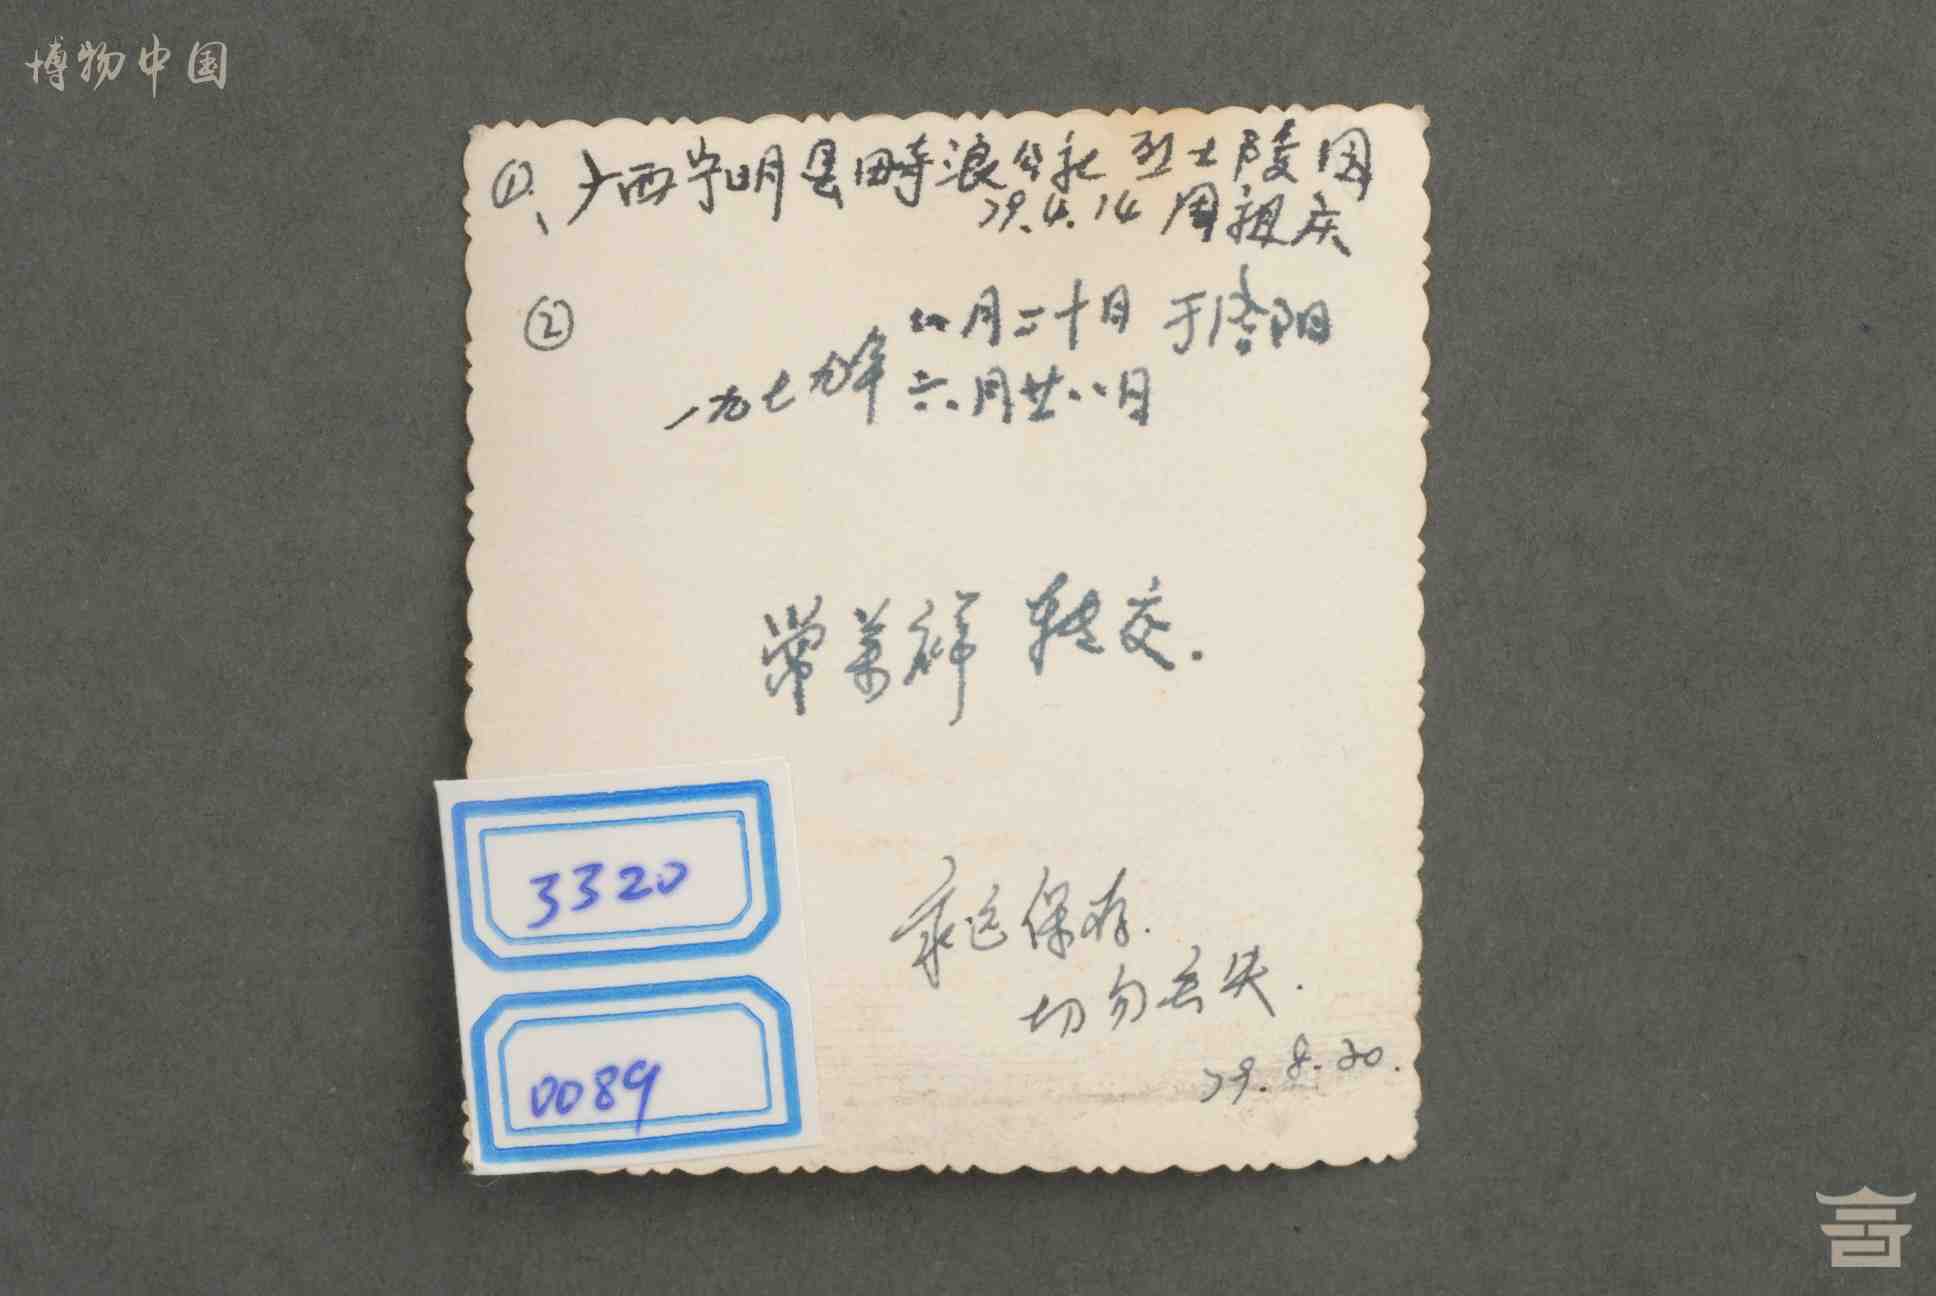 博物中国
①、广西宁明县畸浪公社烈士陵园
79.4.14 周祖庆
② 八月二十日 于洛阳
一九七九年六月廿八日
常美祥 转交.
永远保存.
切勿丢失.
79.8.20.
3320
0089